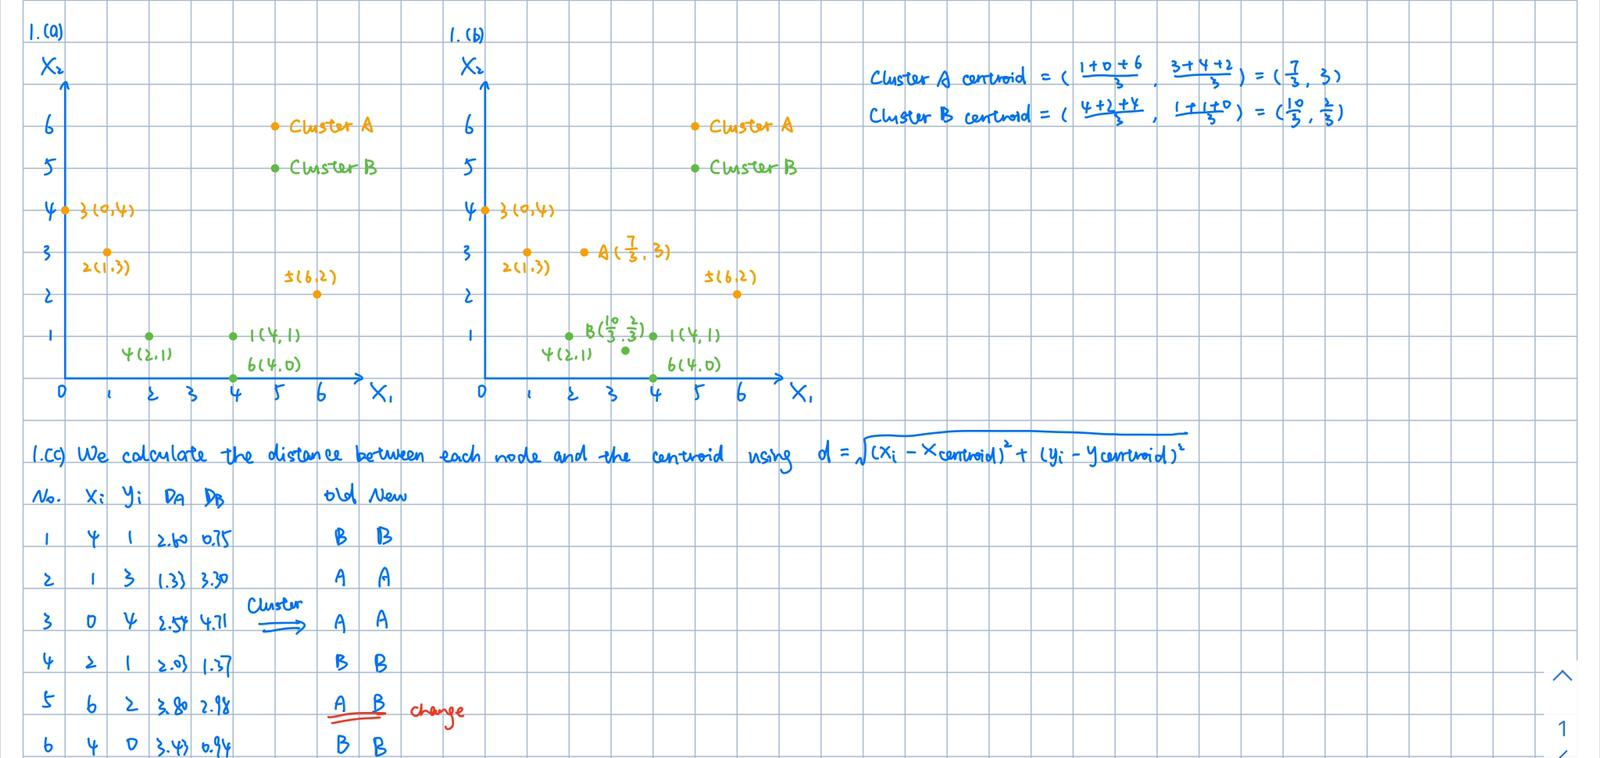 1.(a)
X₂
6
5
4
3
2
1
0 1 2 3 4 5 6 X₁
Cluster A
Cluster B
3(0,4)
2(1,3)
5(6,2)
4(2,1)
1(4,1)
6(4,0)
1.(b)
X₂
6
5
4
3
2
1
0 1 2 3 4 5 6 X₁
Cluster A
Cluster B
3(0,4)
2(1,3)
A(7/3, 3)
5(6,2)
B(10/3, 2/3)
4(2,1)
1(4,1)
6(4,0)
Cluster A centroid = ( (1+0+6)/3 , (3+4+2)/3 ) = (7/3, 3)
Cluster B centroid = ( (4+2+4)/3 , (1+1+0)/3 ) = (10/3, 2/3)
1.(c) We calculate the distance between each node and the centroid using d = √((xi - Xcentroid)² + (yi - Ycentroid)²)
No. Xi Yi DA DB Old New
1 4 1 2.60 0.75 B B
2 1 3 1.33 3.30 A A
Cluster
3 0 4 2.54 4.71 ⇒ A A
4 2 1 2.03 1.37 B B
5 6 2 3.80 2.98 A B change
6 4 0 3.43 0.94 B B
1